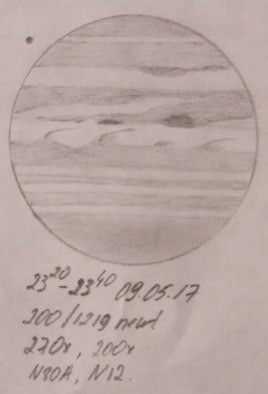 23²⁰-23⁴⁰ 09.05.17
200/1219 newt
270x, 200x
N20A, N12.